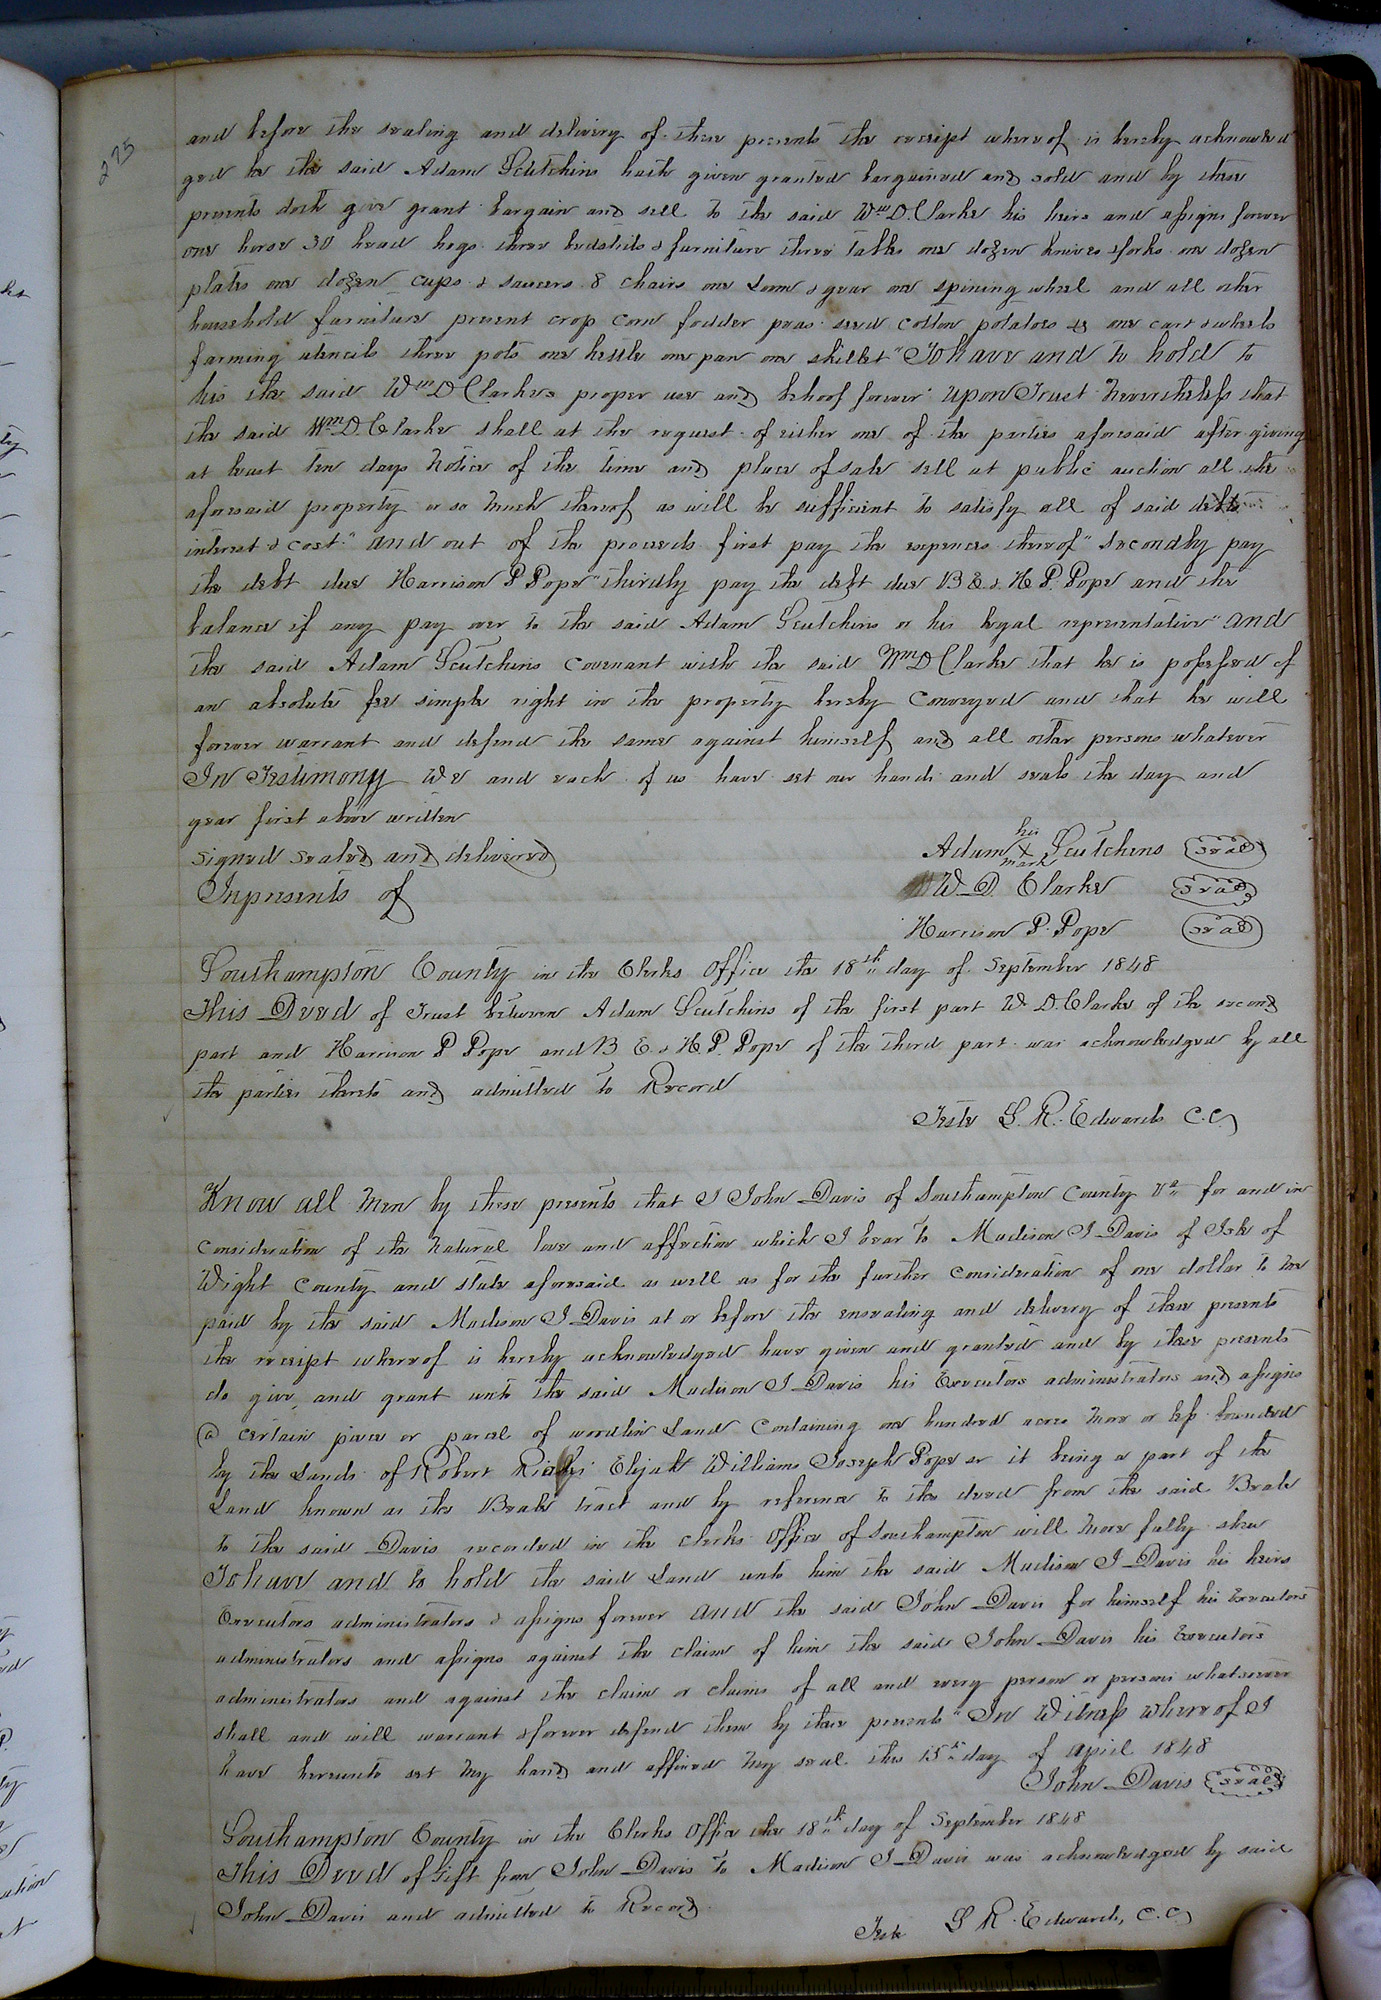 275
and before the sealing and delivery of these presents the receipt whereof is hereby acknowled
ged he the said Adam Scutchins hath given granted bargained and sold and by these
presents doth give grant bargain and sell to the said Wm D. Clarke his heirs and assigns forever
one horse 30 head hogs three bedstids & furniture three tables one dozen knives & forks one dozen
plates one dozen cups & saucers 8 chairs one Loom & gear one spining wheel and all other
household furniture present crop corn fodder peas seed cotton potatoes &c one cart & wheels
farming utencils three pots one kettle one pan one skillet" To have and to hold to
his the said Wm D Clarkes proper use and behoof forever upon Trust Nevertheless that
the said Wm D. Clarke shall at the request of either one of the parties aforesaid after giving
at least ten days Notice of the time and place of sale sell at public auction all the
aforesaid property or so much thereof as will be sufficient to satisfy all of said debts
interest & cost." and out of the proceeds first pay the expences thereof" secondly pay
the debt due Harrison P Pope" thirdly pay the debt due B E. & H. P. Pope and the
balance if any pay over to the said Adam Scutchins or his legal representative" and
the said Adam Scutchins covenant with the said Wm D Clarke that he is possessed of
an absolute fee simple right in the property hereby conveyed and that he will
forever warrant and defend the same against himself and all other persons whatever
In Testimony We and each of us have set our hands and seals the day and
year first above written
signed sealed and delivered
Inpresents of
his
Adam X Scutchins seal
mark
W D. Clarke seal
Harrison P. Pope seal
Southampton County in the Clerks Office the 18th day of September 1848
This Deed of Trust between Adam Scutchins of the first part W D. Clarke of the second
part and Harrison P Pope and B E. & H P. Pope of the third part was acknowledged by all
the parties thereto and admitted to Record
Teste L. R. Edwards C.C.
Know all Men by these presents that I John Davis of Southampton County Va for and in
consideration of the Natural love and affection which I bear to Madison J Davis of Isle of
Wight County and state aforesaid as well as for the further consideration of one dollar to me
paid by the said Madison J Davis at or before the ensealing and delivery of these presents
the receipt whereof is hereby acknowledged have given and granted and by these presents
do give, and grant unto the said Madison J Davis his Executors administrators and assigns
a certain piece or parcel of woodlin Land containing one hundred acres More or less bounded
by the Lands of Robert Elijah Williams Joseph Pope it being a part of the
Land known as the Beale tract and by reference to the deed from the said Beale
to the said Davis recorded in the clerks Office of Southampton will more fully shew
To have and to hold the said Land unto him the said Madison J Davis his heirs
Executors administrators & assigns forever and the said John Davis for himself his Executors
administrators and assigns against the claim of him the said John Davis his Executors
administrators and against the claim or claims of all and every person or persons whatsoever
shall and will warrant & forever defend them by these presents" In Witness whereof I
have hereunto set My hand and affixed My seal this 15th day of April 1848
John Davis seal
Southampton County in the Clerks Office the 18th day of September 1848
This Deed of Gift from John Davis to Madison J Davis was acknowledged by said
John Davis and admitted to Record.
Teste L R. Edwards, C.C.